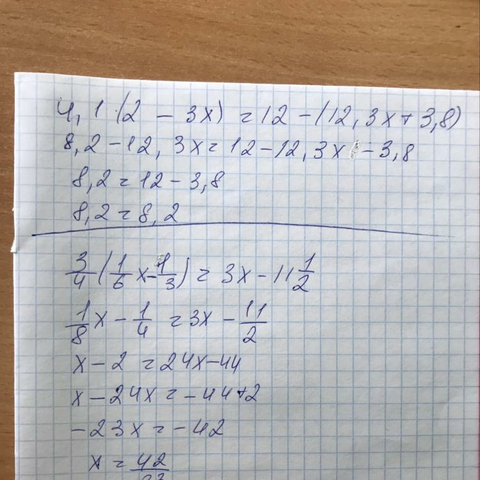 4,1 (2 - 3x) = 12 - (12,3x + 3,8)
8,2 - 12,3x = 12 - 12,3x - 3,8
8,2 = 12 - 3,8
8,2 = 8,2
3/4 (1/6 x - 1/3) = 3x - 11 1/2
1/8 x - 1/4 = 3x - 11/2
x - 2 = 24x - 44
x - 24x = -44 + 2
-23x = -42
x = 42/23